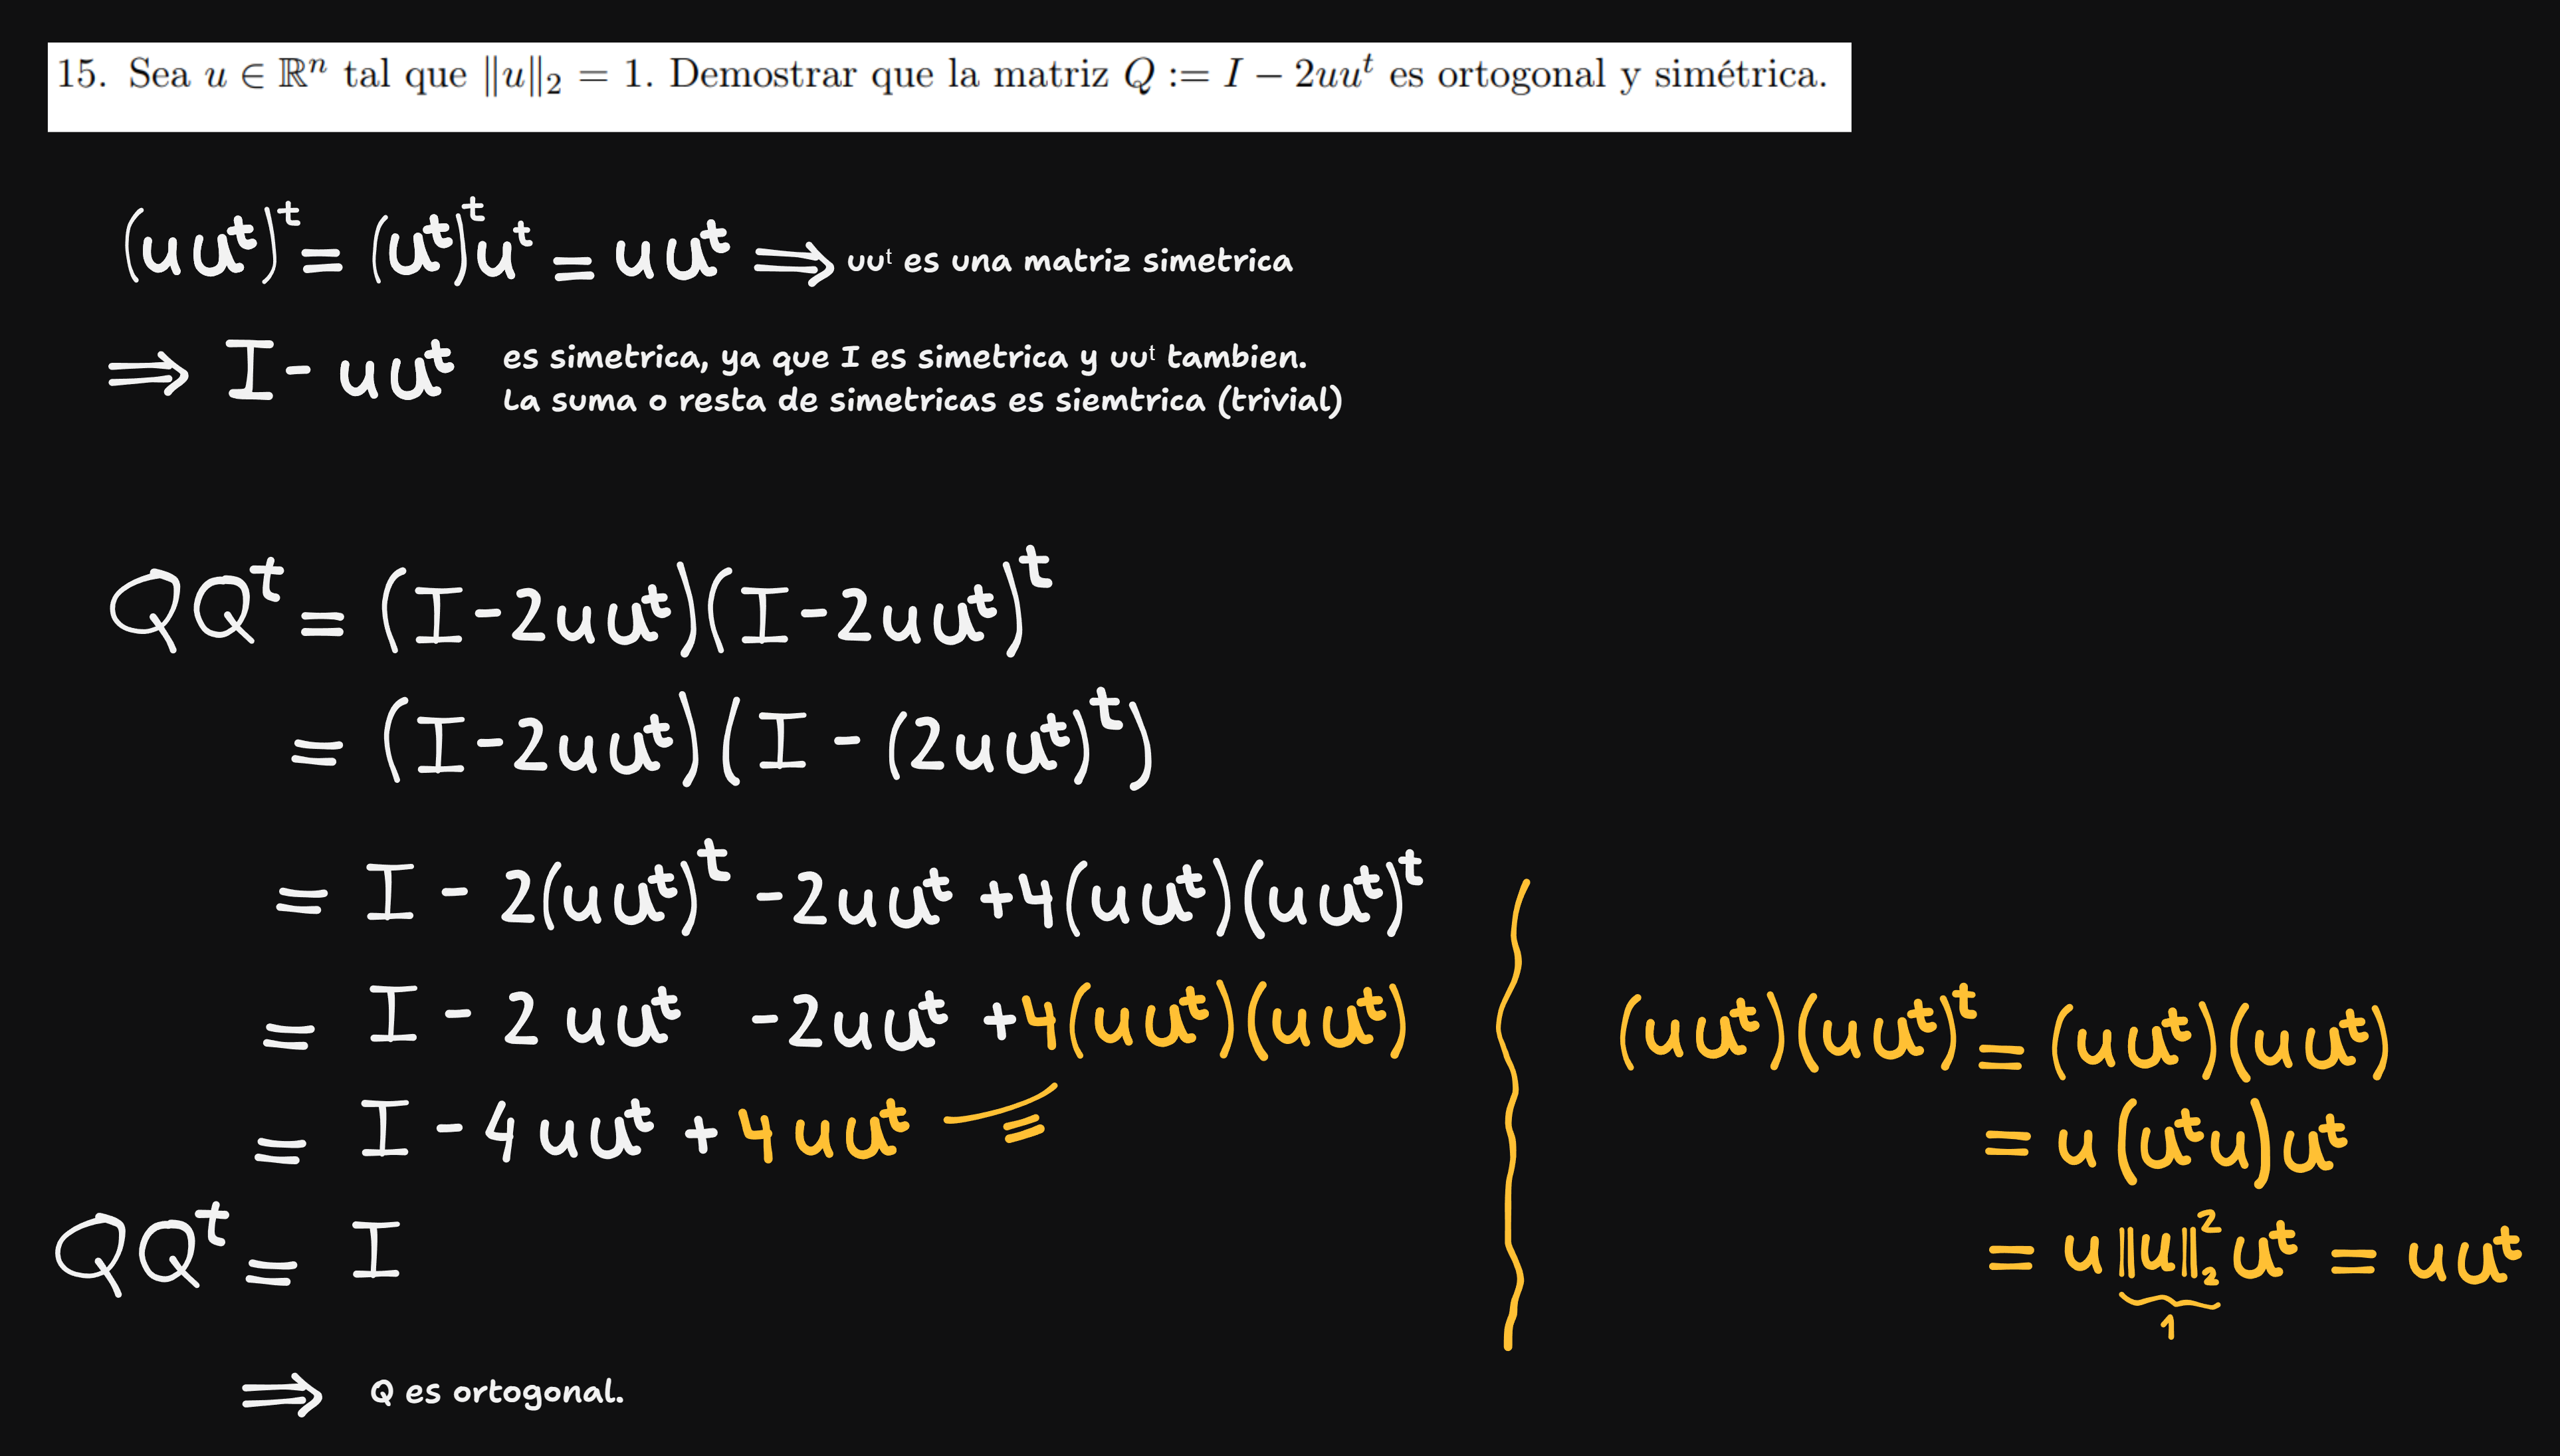 15. Sea u ∈ ℝⁿ tal que ‖u‖₂ = 1. Demostrar que la matriz Q := I − 2uuᵗ es ortogonal y simétrica.
(u uᵗ)ᵗ = (uᵗ)ᵗ uᵗ = u uᵗ ⟹ uuᵗ es una matriz simetrica
⟹ I - u uᵗ es simetrica, ya que I es simetrica y uuᵗ tambien.
La suma o resta de simetricas es siemtrica (trivial)
QQᵗ = (I - 2u uᵗ)(I - 2u uᵗ)ᵗ
= (I - 2u uᵗ)(I - (2u uᵗ)ᵗ)
= I - 2(u uᵗ)ᵗ - 2u uᵗ + 4(u uᵗ)(u uᵗ)ᵗ
= I - 2 u uᵗ - 2u uᵗ + 4(u uᵗ)(u uᵗ)
= I - 4 u uᵗ + 4 u uᵗ =
QQᵗ = I
⟹ Q es ortogonal.
(u uᵗ)(u uᵗ)ᵗ = (u uᵗ)(u uᵗ)
= u (uᵗ u) uᵗ
= u ‖u‖₂² uᵗ = u uᵗ
1